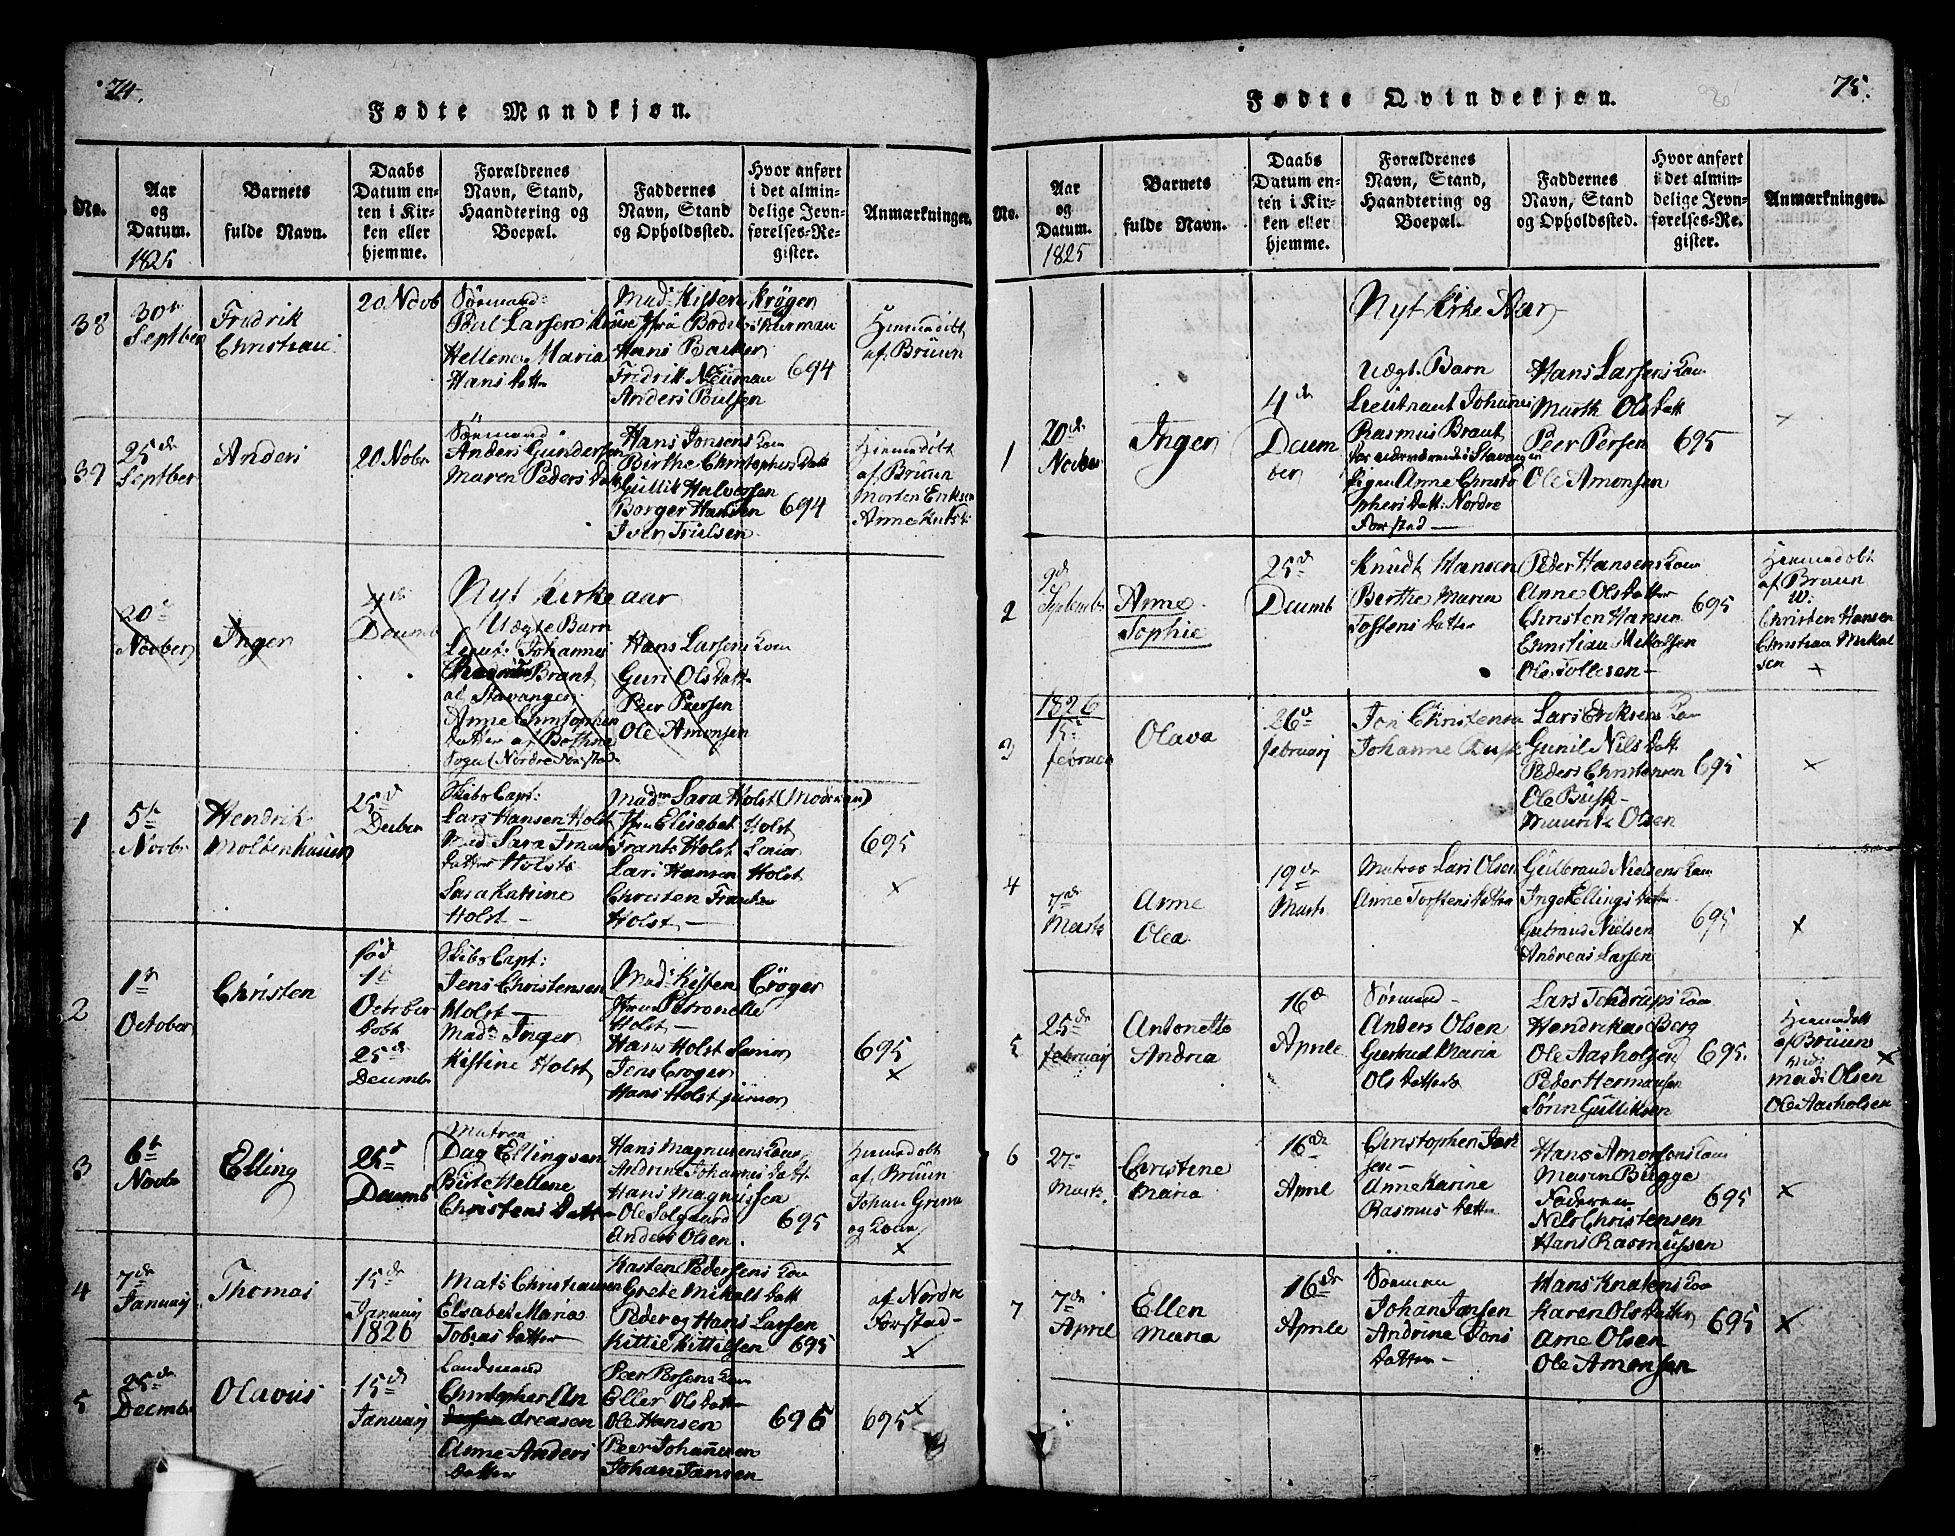 74.
Fødte Mandkjøn.
No.
Aar
og
Datum.
1825
Barnets
fulde Navn.
Daabs
Datum en-
ten i Kir-
ken eller
hjemme.
Forældrenes
Navn, Stand,
Haandtering og
Boepæl.
Faddernes
Navn, Stand
og Opholdssted.
Hvor anført
i det almin-
delige Jevn-
førelses-Re-
gister.
Anmærkninger.
38
30te
Septber
Fredrik
Christian
20 Novb
Sørmand
Poul Larsen
Hellene Maria
Hans datter
Mad: Kisten Krøger
Hans Backer
Fredrik Neuman
Anders Poulsen
694
Hiemmedøbt
af Bruun
39
25de
Septber
Anders
20 Nobr
Sørmand
Anders Gundersen
Maren Peders datt
Hans Jonsens Kone
Birthe Christophers datt
Gullik Halversen
Borger Hansen
Iver Truelsen
694
Hiemmedøbt
af Bruun
Morten Eriksen
Anne Knutsd:
Nyt Kirke aar
20de
Novber
Inger
4de
Decemb
Uægte Barn
Lieut: Johannes
Rasmus Brant
af Stavanger
Anne Christophers
datter af Bothne
Sogn (Nordre Forstad
Hans Larsens Kone
Guri Olsdatt
Peer Peersen
Ole Amonsen
1
5te
Novbr
Hendrik
Moldenhauer
25de
Decber
Skibs Capt:
Lars Hansen Holst
Mad: Sara Frants
datter Holst
Sara Katrine
Holst
Madm Sara Holst (Moderen)
Jfru Elisabet Holst
Frants Holst Senior
Lars Hansen Holst
Christen Frantsen
Holst
695
×
2
1ste
October
Christen
fød
1te
October
døbt
25de
Decembr
Skibs Capt:
Jens Christensen
Holst
Madm Inger
Kistine Holst
Mad: Kisten Crøger
Jfru Petronelle
Holst
Hans Holst Senior
Jens Crøger
Hans Holst junior
695
×
3
6te
Novbr
Elling
25de
Decemb
Matros
Dag Ellingsen
Birte Hellene
Christens datter
Hans Magnusens Kone
Andrine Johannes datt
Hans Magnussen
Ole Solgaard
Anders Olsen.
695
Hiemmedøbt
af Bruun
Johan Grim
og Kone
×
4
7de
Januarj
Thomas
15de
Januarj
1826
Mats Christiansen
Elsabet Maria
Tobias datter
Karsten Pedersens Kone
Grete Mikels datt
Peder og Hans Larsen
Kittil Kittilsen
695
af Nordre
Forstad
×
5
25de
Decmbr
Olavus
15de
Januarj
Landmand
Christopher An
dreasen
Anne Anders
datter
Peer Persens Kone
Eller Olsdatter
Ole Hansen
Peer Johannesen
Johan Jansen
695
695
×
75.
Fødte Qvindekjøn.
No.
Aar
og
Datum.
1825
Barnets
fulde Navn.
Daabs
Datum en-
ten i Kir-
ken eller
hjemme.
Forældrenes
Navn, Stand,
Haandtering og
Boepæl.
Faddernes
Navn, Stand
og Opholdssted.
Hvor anført
i det almin-
delige Jevn-
førelses-Re-
gister.
Anmærkninger.
Nyt Kirke Aar
1
20de
Novber
Inger
4de
Decem
ber
Uægt. Barn
Lieutnant Johannes
Rasmus Brant
for nærværende i Stavanger
Pigen Anne Christo
phers datt: Nordre
Forstad
Hans Larsens Kone
Marth Olsdatt
Peer Persen
Ole Amonsen
695
×
2
9de
Septembr
Anne
Sophie
25de
Decemb
Knudt Hansen
Berthe Maria
Tostens datter
Peder Hansens Kone
Anne Olsdatter
Christen Hansen
Christian Mikelsen
Ole Tollesen
695
Hiemmedøbt
af Bruun
W:
Christen Hansen
Christian Mikel
sen
×
3
1826
15de
februar
Olava
26de
februarj
Jon Christensen
Johanne
Lars Eriksens Kone
Gunil Nils datt
Peders Christensen
Ole Busk
Maurits Olsen
695
×
4
7de
Marts
Anne
Olea
19de
Marts
Matros Lars Olsen
Anne Torstens datter
Gulbrand Nielsens Kone
Inger Ellings datter
Gulbrand Nielsen
Andreas Larsen
695
×
5
25de
februarj
Antonette
Andrea
16de
Aprile
Sørmand
Anders Olsen
Gjertrud Maria
Olsdatter
Lars Tendrups Kone
Hendrikas Berg
Ole Aasholsen
Peder Hermansen
Sørn Gulliksen
695.
Hiemmedøbt
af Bruun
Mads Olsen
Ole Aasholsen
×
6
27de
Marts.
Christine
Maria
16de
April
Christopher
sen
Anne Karine
Rasmus datter
Hans Amonsens Kone
Maren Bugge
Faderen
Nils Christensen
Hans Rasmussen
695
×
7
7de
April
Ellen
Maria
16de
Aprile
Sørman
Johan Jansen
Andrine Jons
datter
Hans Knutens Kone
Karen Olsdatter
Arne Olsen
Ole Amonsen
695
×